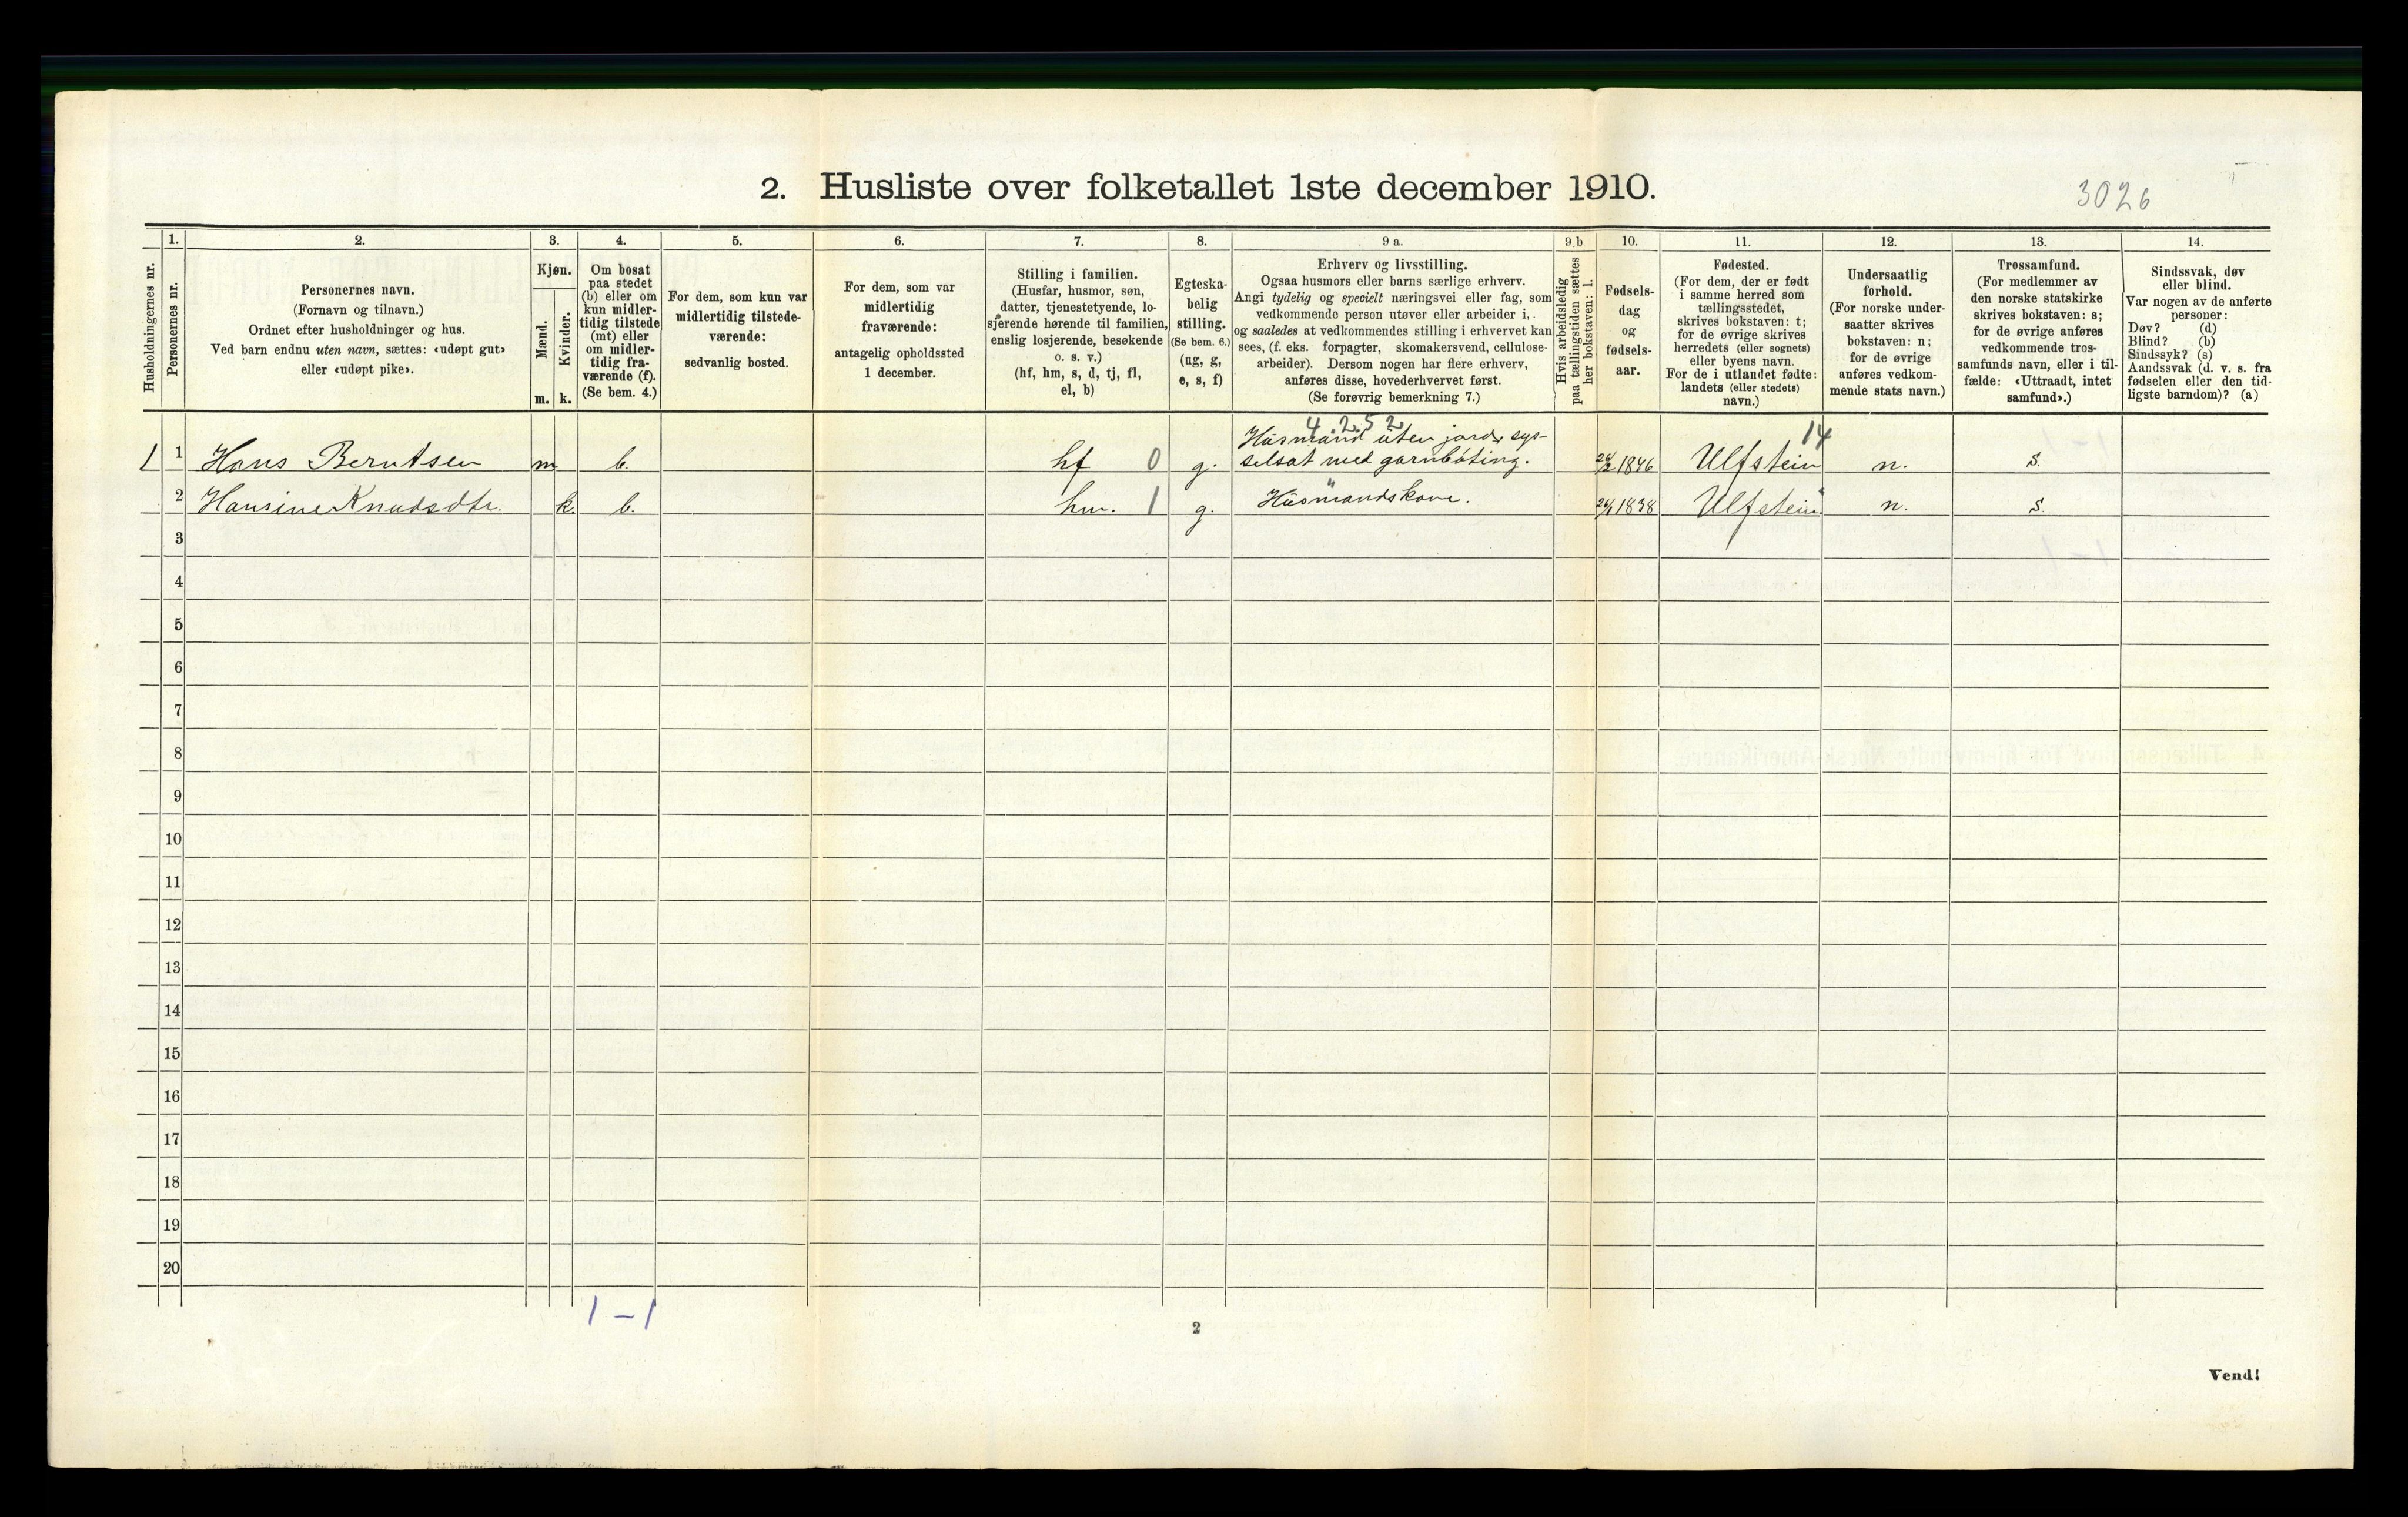 2. Husliste over folketallet 1ste december 1910.
3026
Husholdningernes nr.
1.
Personernes nr.
2.
Personernes navn.
(Fornavn og tilnavn.)
Ordnet efter husholdninger og hus.
Ved barn endnu uten navn, sættes: «udøpt gut»
eller «udøpt pike».
3.
Kjøn.
Mænd.
Kvinder.
m. k.
4.
Om bosat
paa stedet
(b) eller om
kun midler-
tidig tilstede
(mt) eller
om midler-
tidig fra-
værende (f).
(Se bem. 4.)
5.
For dem, som kun var
midlertidig tilstede-
værende:
sedvanlig bosted.
6.
For dem, som var
midlertidig
fraværende:
antagelig opholdssted
1 december.
7.
Stilling i familien.
(Husfar, husmor, søn,
datter, tjenestetyende, lo-
sjerende hørende til familien,
enslig losjerende, besøkende
o. s. v.)
(hf, hm, s, d, tj, fl,
el, b)
8.
Egteska-
belig
stilling.
(Se bem. 6.)
(ug, g,
e, s, f)
9 a.
Erhverv og livsstilling.
Ogsaa husmors eller barns særlige erhverv.
Angi tydelig og specielt næringsvei eller fag, som
vedkommende person utøver eller arbeider i,
og saaledes at vedkommendes stilling i erhvervet kan
sees, (f. eks. forpagter, skomakersvend, cellulose-
arbeider). Dersom nogen har flere erhverv,
anføres disse, hovederhvervet først.
(Se forøvrig bemerkning 7.)
9 b
Hvis arbeidsledig
paa tællingstiden sættes
her bokstaven: l.
10.
Fødsels-
dag
og
fødsels-
aar.
11.
Fødested.
(For dem, der er født
i samme herred som
tællingsstedet,
skrives bokstaven: t;
for de øvrige skrives
herredets (eller sognets)
eller byens navn.
For de i utlandet fødte:
landets (eller stedets)
navn.)
12.
Undersaatlig
forhold.
(For norske under-
saatter skrives
bokstaven: n;
for de øvrige
anføres vedkom-
mende stats navn.)
13.
Trossamfund.
(For medlemmer av
den norske statskirke
skrives bokstaven: s;
for de øvrige anføres
vedkommende tros-
samfunds navn, eller i til-
fælde: «Uttraadt, intet
samfund».)
14.
Sindssvak, døv
eller blind.
Var nogen av de anførte
personer:
Døv? (d)
Blind? (b)
Sindssyk? (s)
Aandssvak (d. v. s. fra
fødselen eller den tid-
ligste barndom)? (a)
4.252
Husmand uten jord, sys-
14
1 1 Hans Berntsen m b. hf 0 g. selsat med garnbøting. 1846 Ulfstein n. s.
2 Hansine Knudsdtr. k. b. hm. 1 g. Husmandskone. 1838 Ulfstein n. s.
3
4
5
6
7
8
9
10
11
12
13
14
15
16
17
18
19
20
1 - 1
2
Vend!